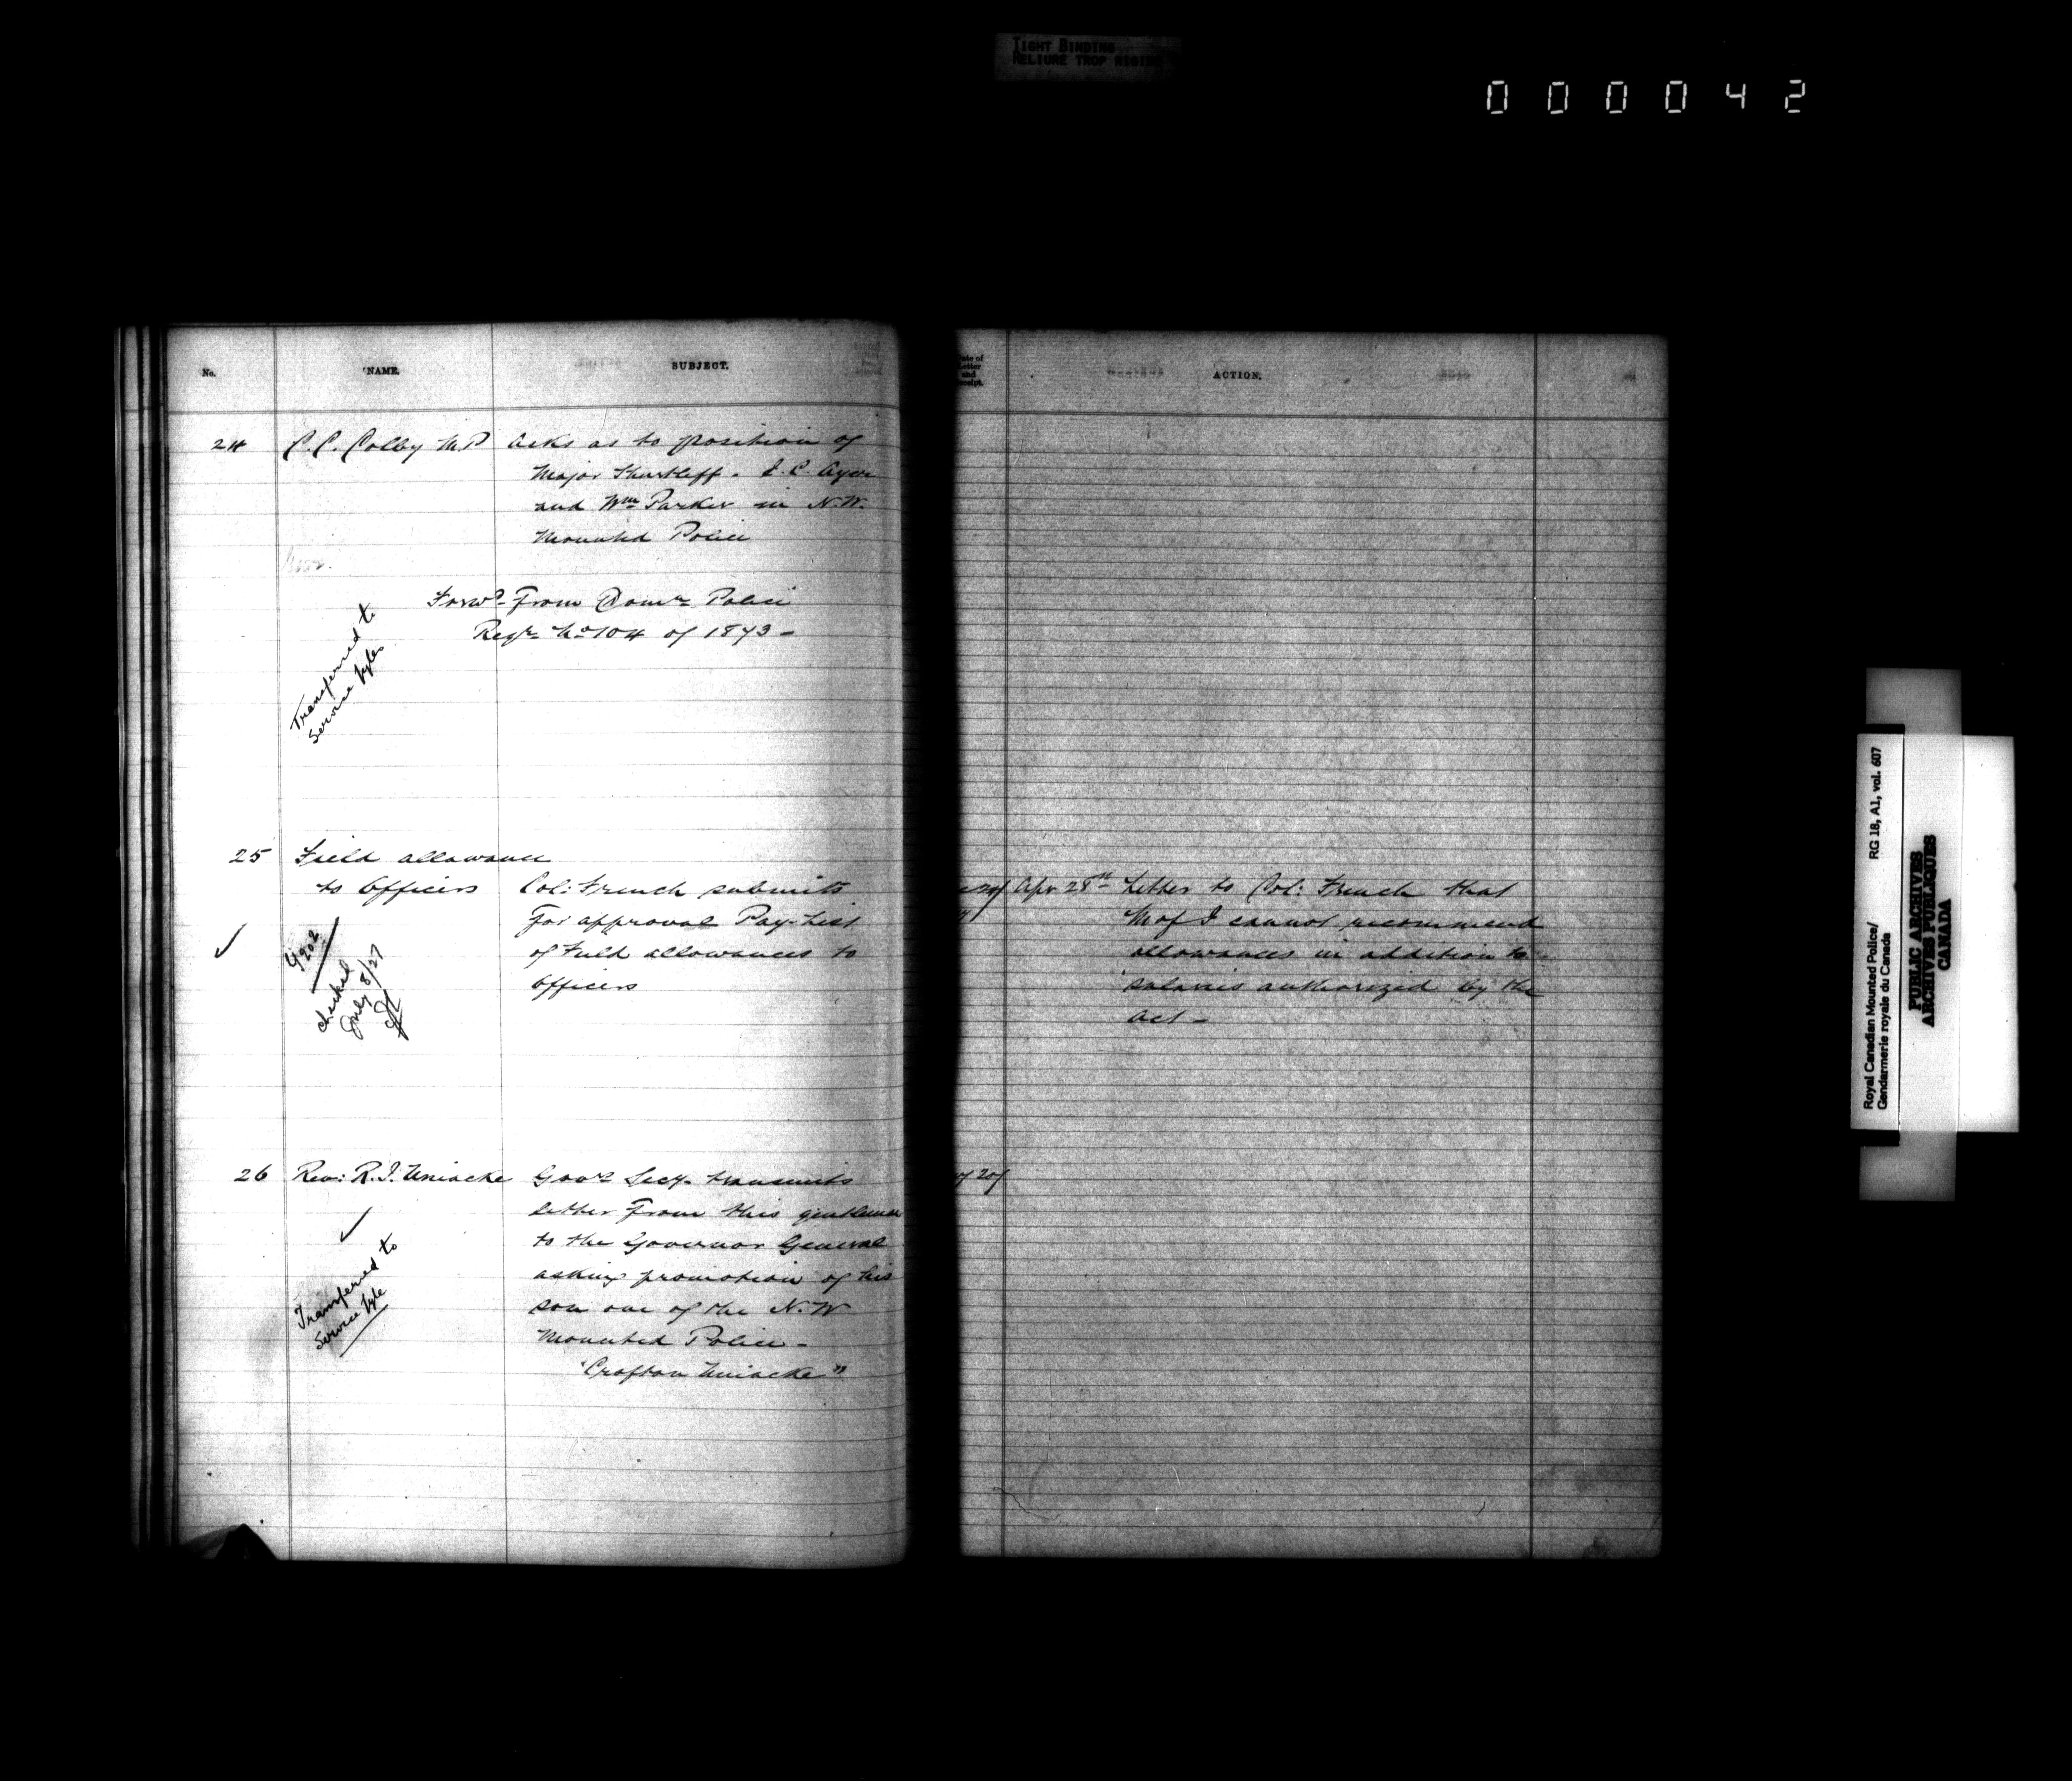 TIGHT BINDING
RELIURE TROP RIGIDE
000042
No.
NAME.
SUBJECT.
24 C. C. Colby M.P Asks as to position of
Major Shurtleff. J. C. Ayer
and Wm Parker in N.W.
Mounted Police
Forwd From Domn Police
Regr No 104 of 1873 -
Transferred to
Service fyles
25 Field allowance
to Officers Col: French submits
For approval Pay-List
of Field allowances to
Officers
checked
July 8/27
26 Rev: R. J. Uniacke Govr Secy. transmits
letter From this gentleman
to the Governor General
asking promotion of his
son one of the N.W
Mounted Police -
"Crofton Uniacke"
Transferred to
Service fyle
Date of
Letter
and
Receipt.
ACTION.
Apr 28th Letter to Col: French that
M of I cannot recommend
allowances in addition to
salaries authorized by the
Act -
Royal Canadian Mounted Police/
Gendarmerie royale du Canada
RG 18, A1, vol. 607
PUBLIC ARCHIVES
ARCHIVES PUBLIQUES
CANADA